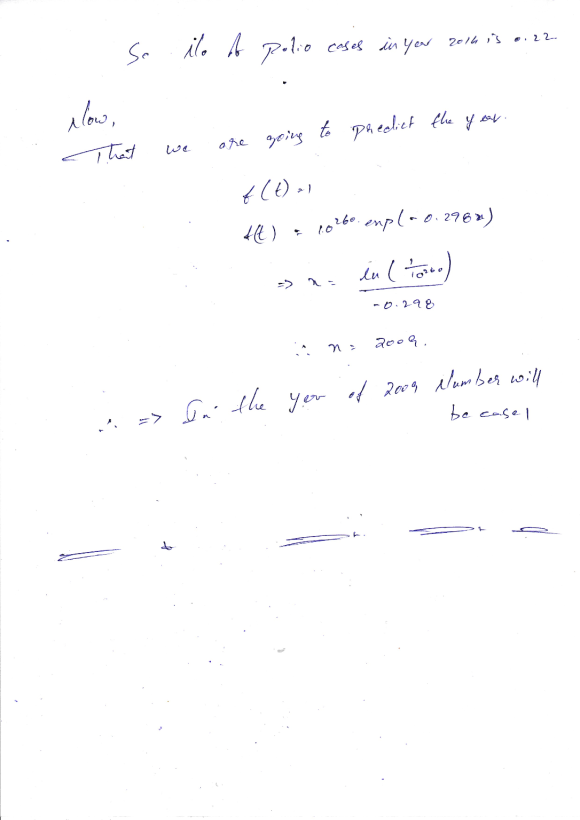 So No of Polio cases in year 2014 is 0.22
Now,
That we are going to predict the year.
f(t) = 1
f(t) = 10^260. exp(-0.298x)
=> x = ln(1/10^260) / -0.298
∴ x = 2009.
∴ => In the year of 2009 Number will
be case 1